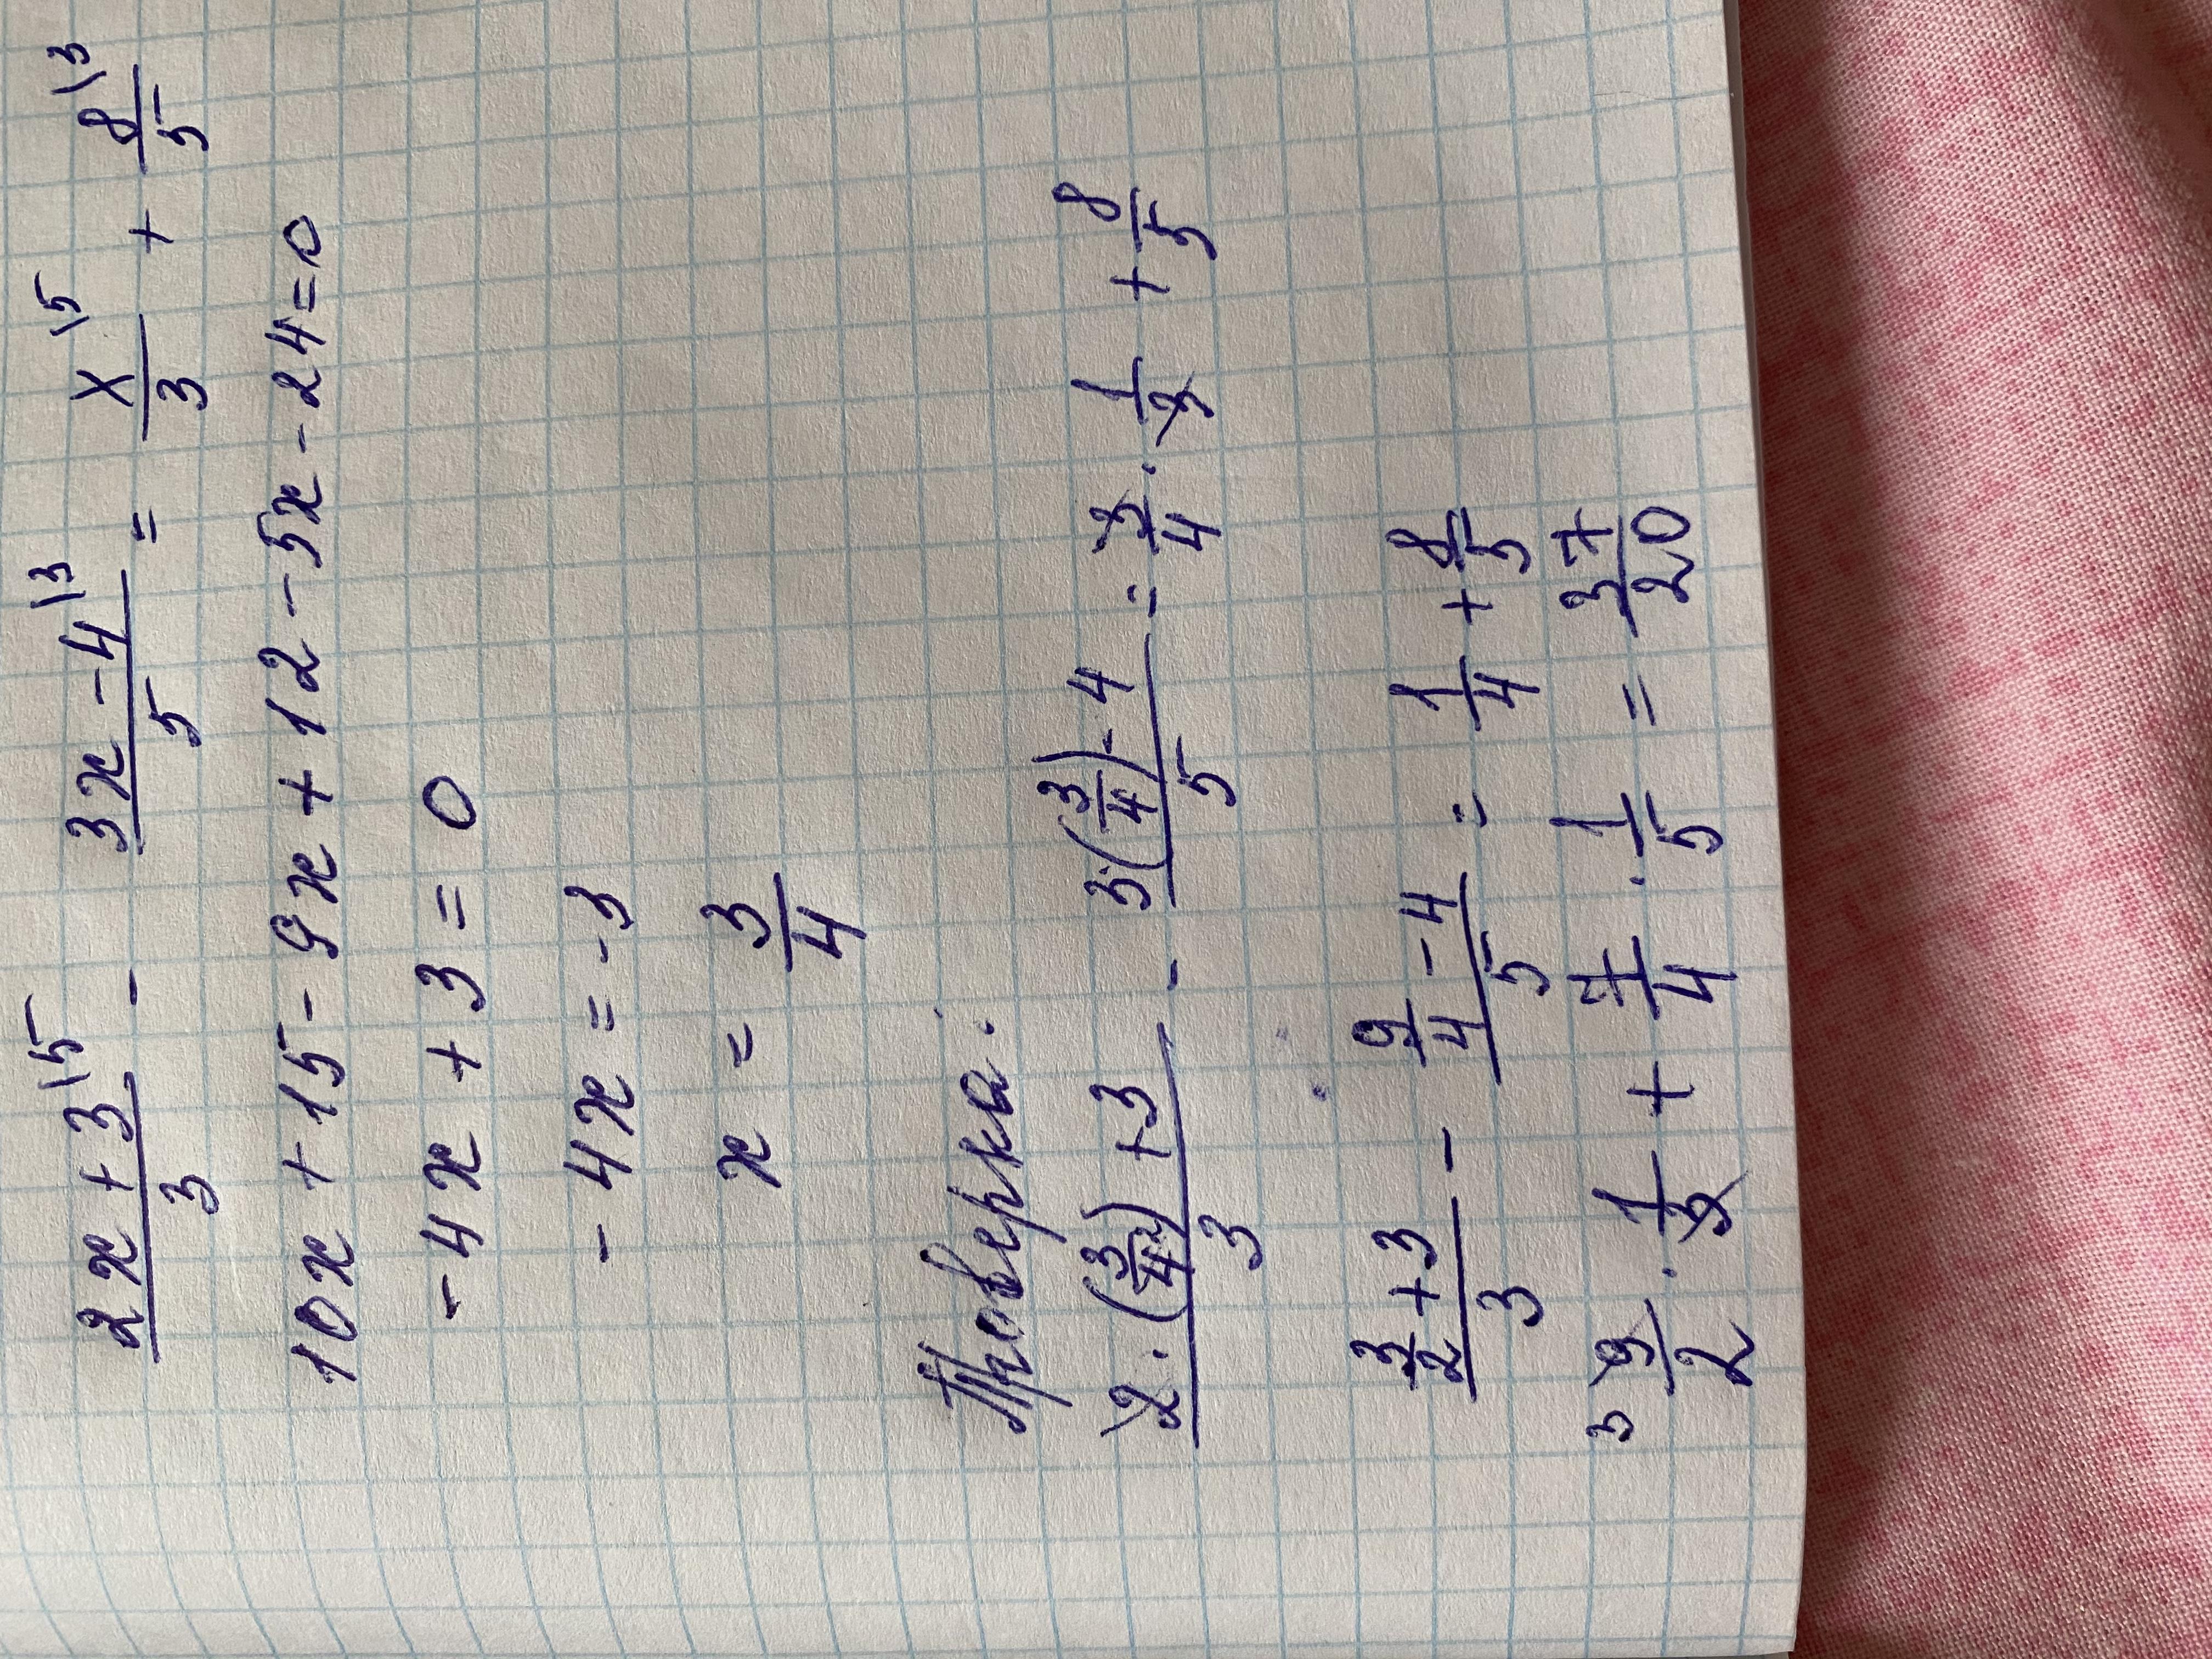 (2x + 3)/3 \5 - (3x - 4)/5 \3 = x/3 \5 + 8/5 \3
10x + 15 - 9x + 12 - 5x - 24 = 0
-4x + 3 = 0
-4x = -3
x = 3/4
Проверка:
(2 · (3/4) + 3)/3 - (3·(3/4) - 4)/5 = 3/4 · 1/3 + 8/5
(3/2 + 3)/3 - (9/4 - 4)/5 = 1/4 + 8/5
3 9/2 · 1/3 + 7/4 · 1/5 = 37/20